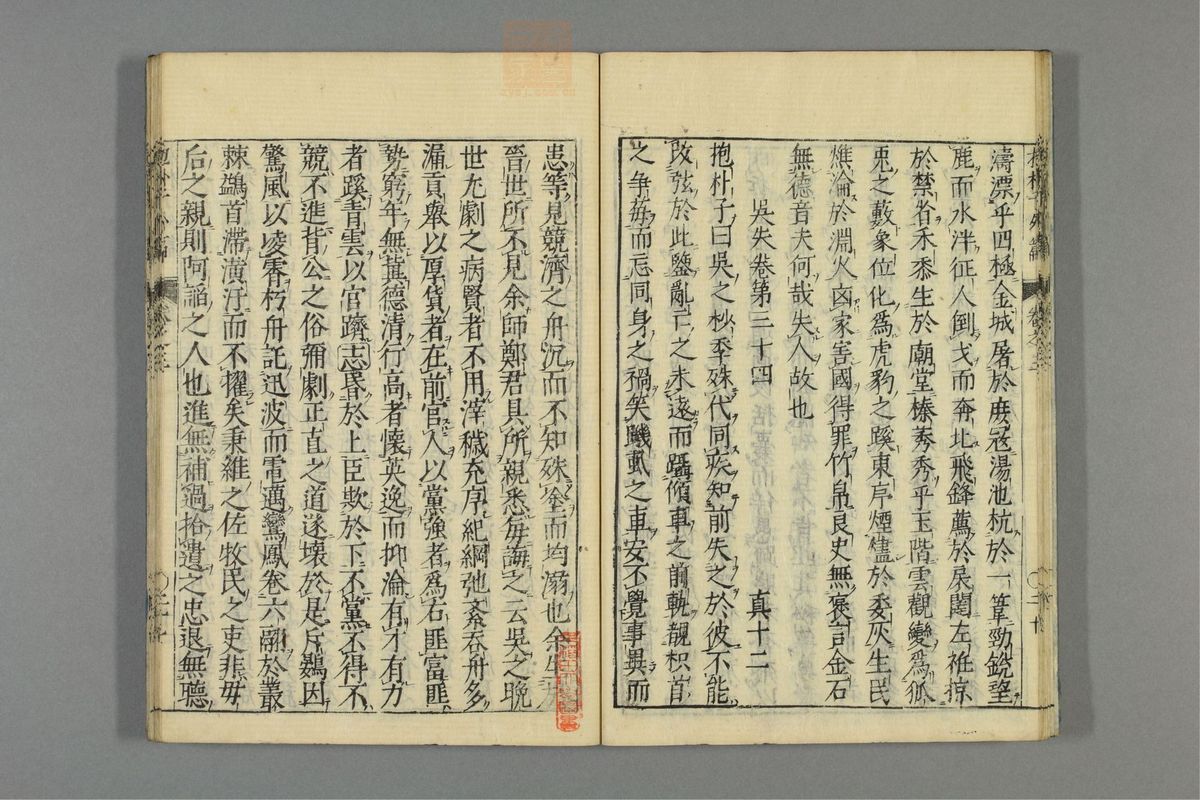 濤漂乎四極金城屠於庶寇湯池杭於一葦勁銳望
鹿而水泮征人倒戈而奔北飛鋒薦於扆闥左衽掠
於禁省禾黍生於廟堂榛莠秀乎玉階雲觀變為狐
兎之藪象位化為虎豹之蹊東序煙燼於委灰生民
燋淪於淵火凶家害國得罪竹帛良史無褒言金石
無德音夫何哉失人故也
吳失卷第三十四 真十二
抱朴子曰吳之杪季殊代同疾知前失之於彼不能
改弦於此鑒亂亡之未遠而躡傾車之前軌覩枳首
之爭苺而忘同身之禍笑蟣虱之
安不覺事異而
患等見競濟之舟沉而不知殊塗而均溺也余生
晉世所不見余師鄭君具所親悉每誨之云吳之晚
世尤劇之病賢者不用滓穢充序紀綱弛紊吞舟多
漏貢舉以厚貨者在前官人以黨強者為右匪富匪
勢窮年無冀德清行高者懷英逸而抑淪有才有力
者躡青雲以官躋志昬於上臣欺於下不黨不得不
競不進背公之俗彌劇正直之道遂壞於是斥鷃因
驚風以凌霄朽舟託迅波而電邁鸞鳳卷六翮於叢
棘鷁首滯潢汙而不擢矣秉維之佐牧民之吏非母
后之親則阿諂之人也進無補過拾遺之忠退無聽